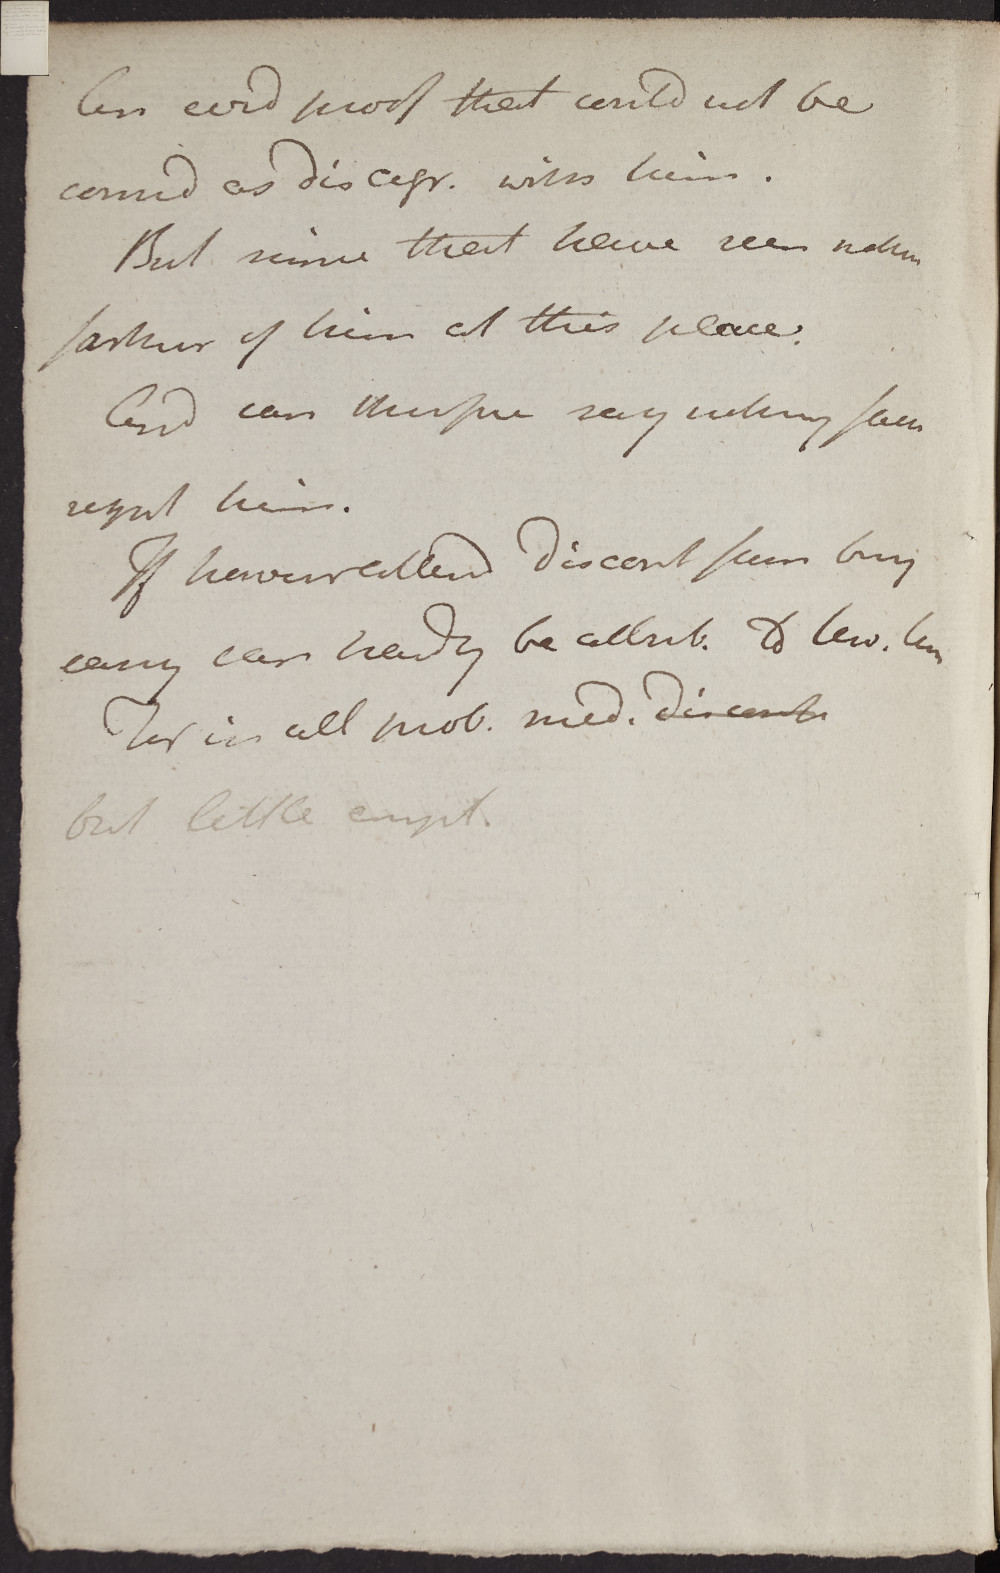 An evid proof that could not be
consid as disagr. with him.
But since that have seen nothin
farther of him at this place.
And can therfore say nothing farr
respt him.
If however attend discont farr being
easy can hardly be attrib. to
For in all prob. med. discont
but little empt.